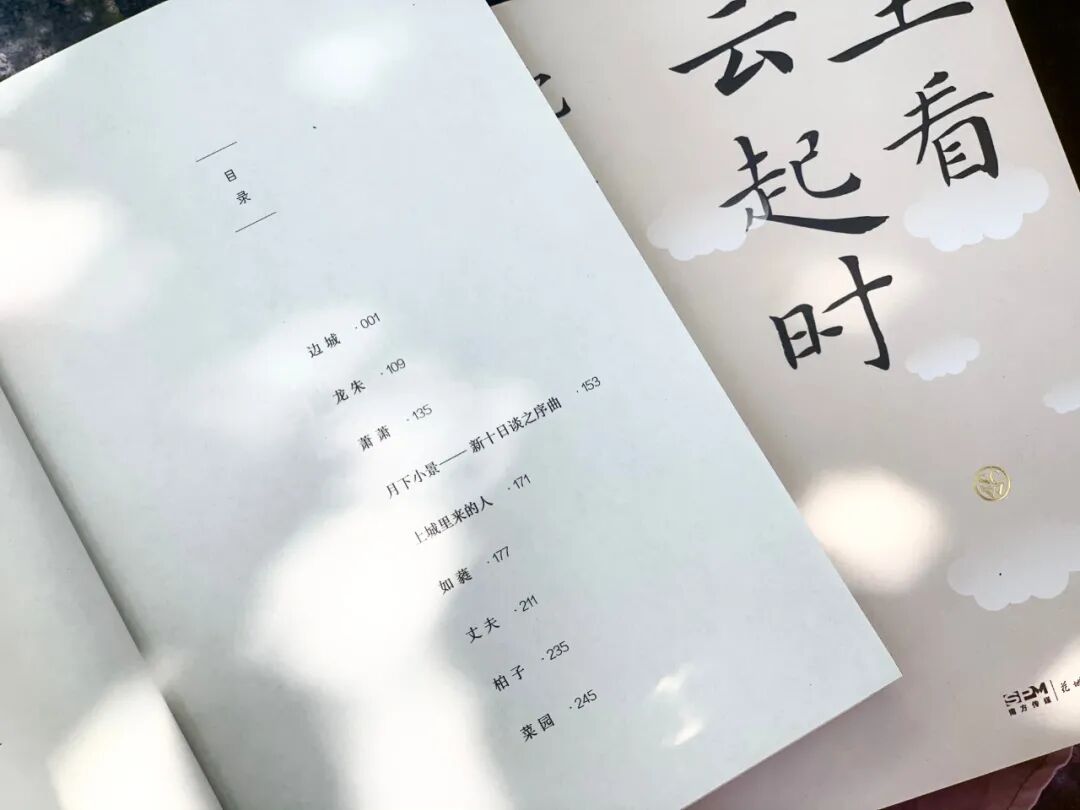 目
录
边城 ·001
龙朱 ·109
萧萧 ·135
月下小景——新十日谈之序曲 ·153
上城里来的人 ·171
如蕤 ·177
丈夫 ·211
柏子 ·235
菜园 ·245
看
云
起
时
南方传媒